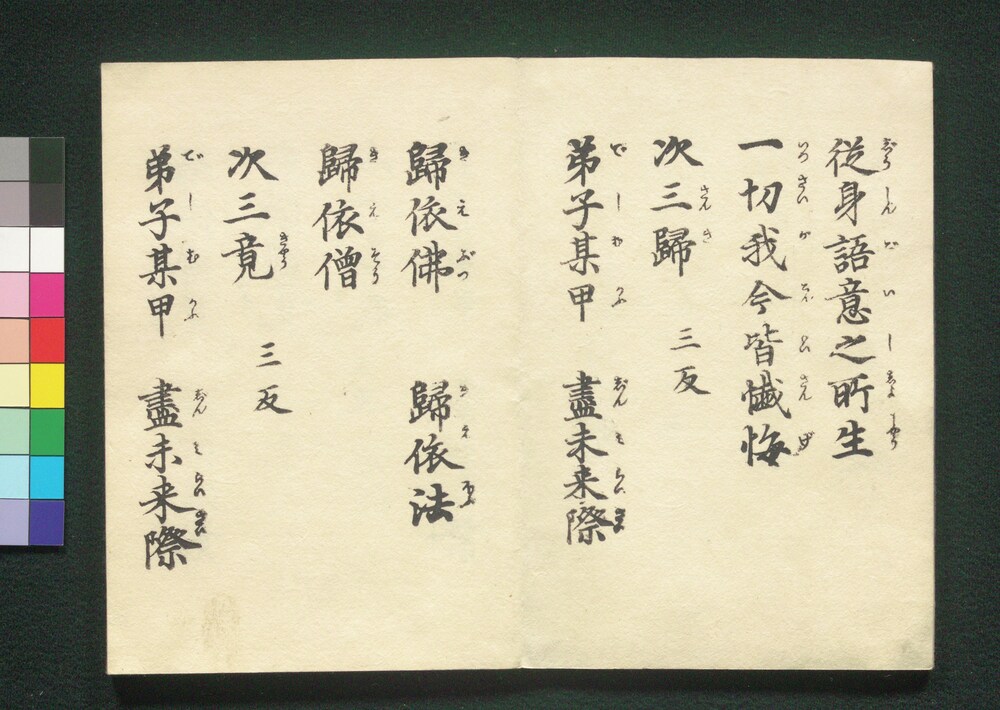 從身語意之所生
一切我今皆懺悔
次三歸 三反
弟子某甲 盡未来際
歸依佛 歸依法
歸依僧
次三竟 三反
弟子某甲 盡未来際